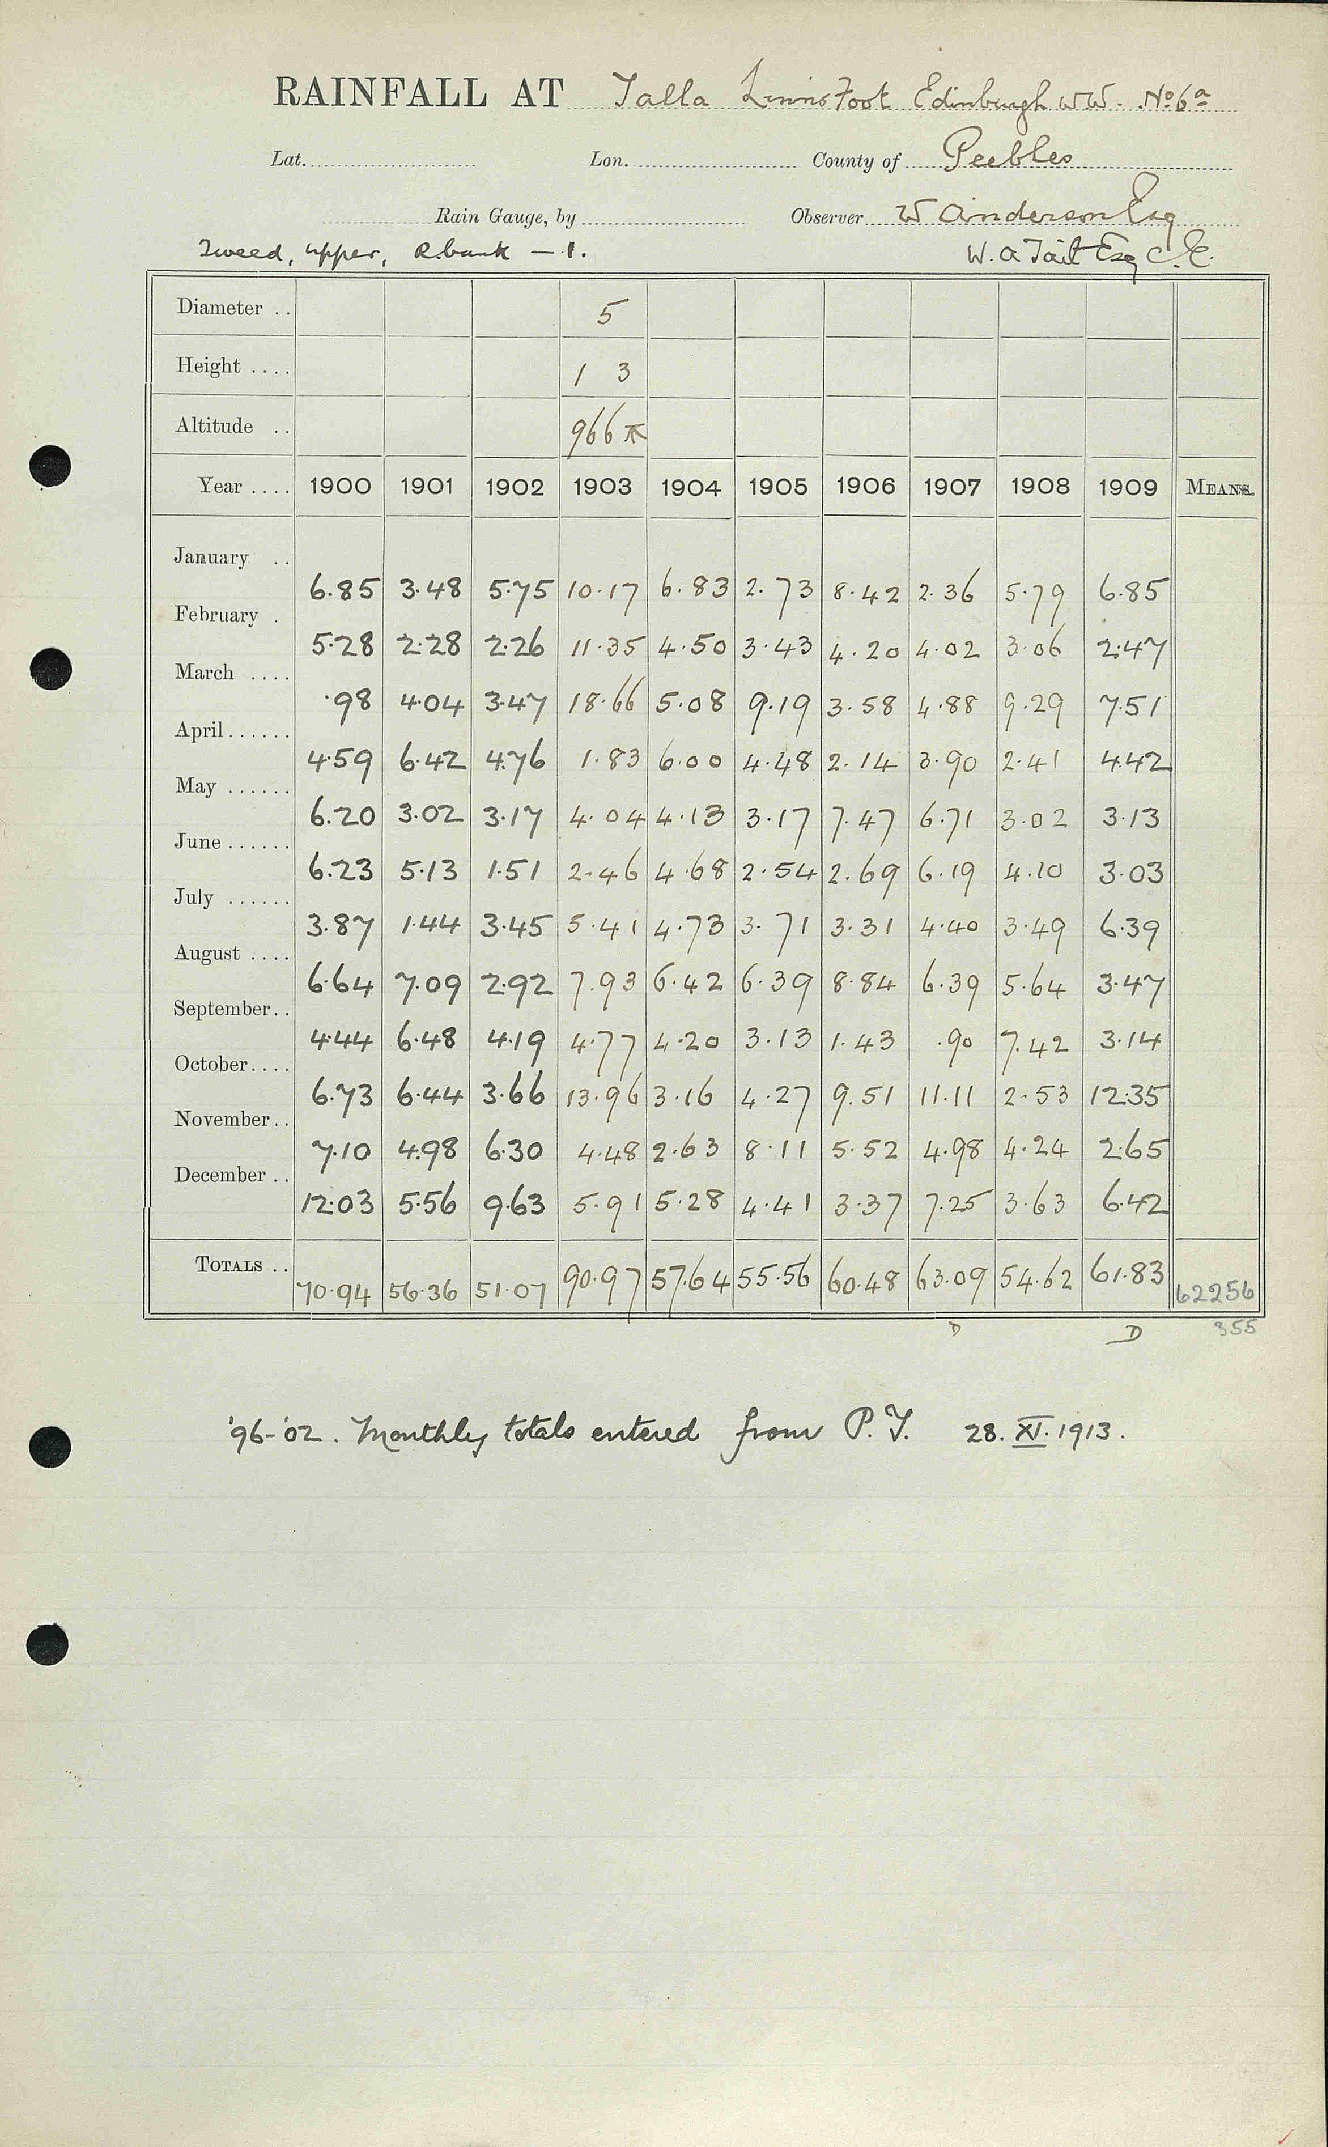 RAINFALL AT Talla Linnsfoot Edinburgh WW. No 6a
Lat. Lon. County of Peebles
Rain Gauge, by Observer W Anderson Esq
Tweed, upper, R. bank — 1. W. A Tait Esq C.E.
Diameter .. 5
Height .... 1 3
Altitude .. 966
Year .... 1900 1901 1902 1903 1904 1905 1906 1907 1908 1909 MEANS.
January .. 6.85 3.48 5.75 10.17 6.83 2.73 8.42 2.36 5.79 6.85
February . 5.28 2.28 2.26 11.35 4.50 3.43 4.20 4.02 3.06 2.47
March .... .98 4.04 3.47 18.66 5.08 9.19 3.58 4.88 9.29 7.51
April...... 4.59 6.42 4.76 1.83 6.00 4.48 2.14 3.90 2.41 4.42
May ...... 6.20 3.02 3.17 4.04 4.13 3.17 7.47 6.71 3.02 3.13
June ...... 6.23 5.13 1.51 2.46 4.68 2.54 2.69 6.19 4.10 3.03
July ...... 3.87 1.44 3.45 5.41 4.73 3.71 3.31 4.40 3.49 6.39
August .... 6.64 7.09 2.92 7.93 6.42 6.39 8.84 6.39 5.64 3.47
September.. 4.44 6.48 4.19 4.77 4.20 3.13 1.43 .90 7.42 3.14
October.... 6.73 6.44 3.66 13.96 3.16 4.27 9.51 11.11 2.53 12.35
November.. 7.10 4.98 6.30 4.48 2.63 8.11 5.52 4.98 4.24 2.65
December .. 12.03 5.56 9.63 5.91 5.28 4.41 3.37 7.25 3.63 6.42
TOTALS .. 70.94 56.36 51.07 90.97 57.64 55.56 60.48 63.09 54.62 61.83 62256
D D 355
'96-'02. Monthly totals entered from P. T. 28. XI. 1913.